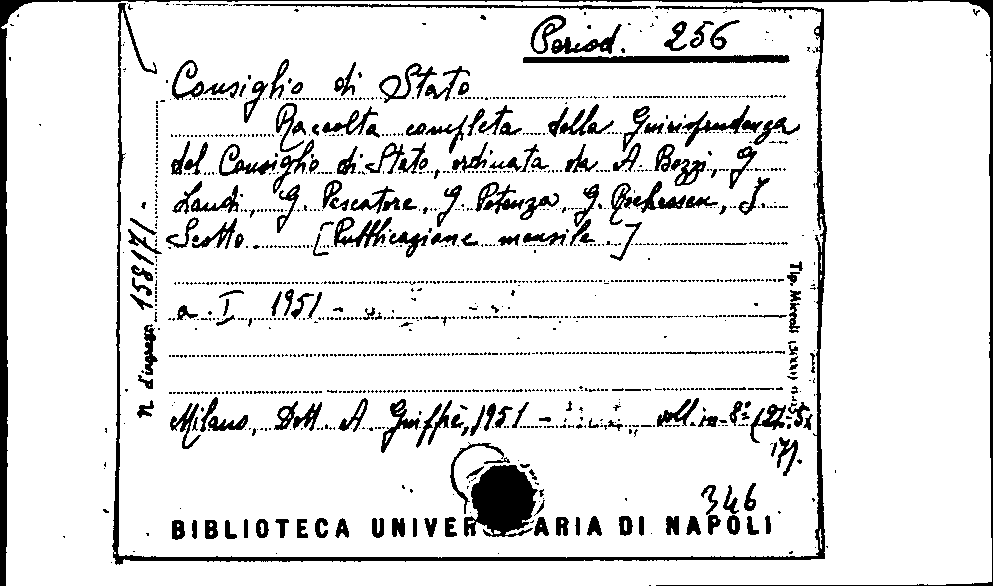 Period. 256
Consiglio di Stato
Raccolta completa della Guirisprudenza
del Consiglio di Stato, ordinata da A. Bozzi, G.
Landi, G. Pescatore, G. Potenza, G. Roehrssen, I.
Scotto. [Pubblicazione mensile.]
a. I, 1951 -
Milano, Dott. A Giuffrè, 1951 - voll. in-8° (25.5x
17).
346
BIBLIOTECA UNIVER ARIA DI NAPOLI
n. d'ingresso 158171.
Tip. Miccoli